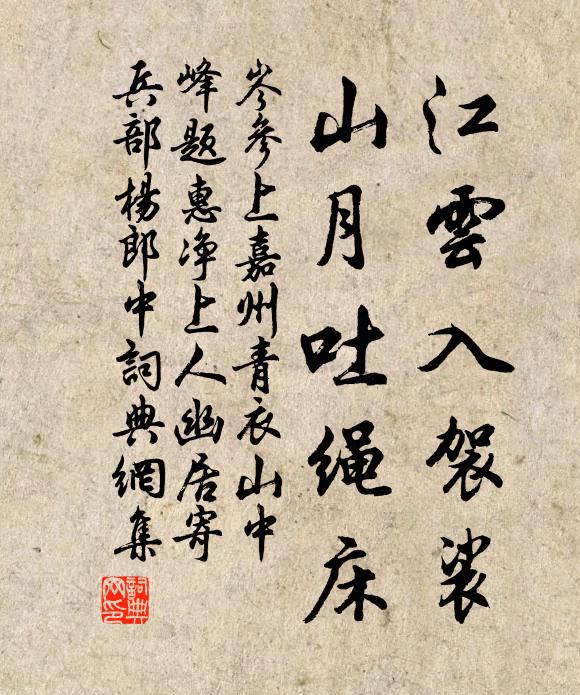 江雲入袈裟
山月吐绳床
岑參上嘉州青衣山中
峰题惠净上人幽居寄
兵部楊郎中詞典網集
詞典
网印